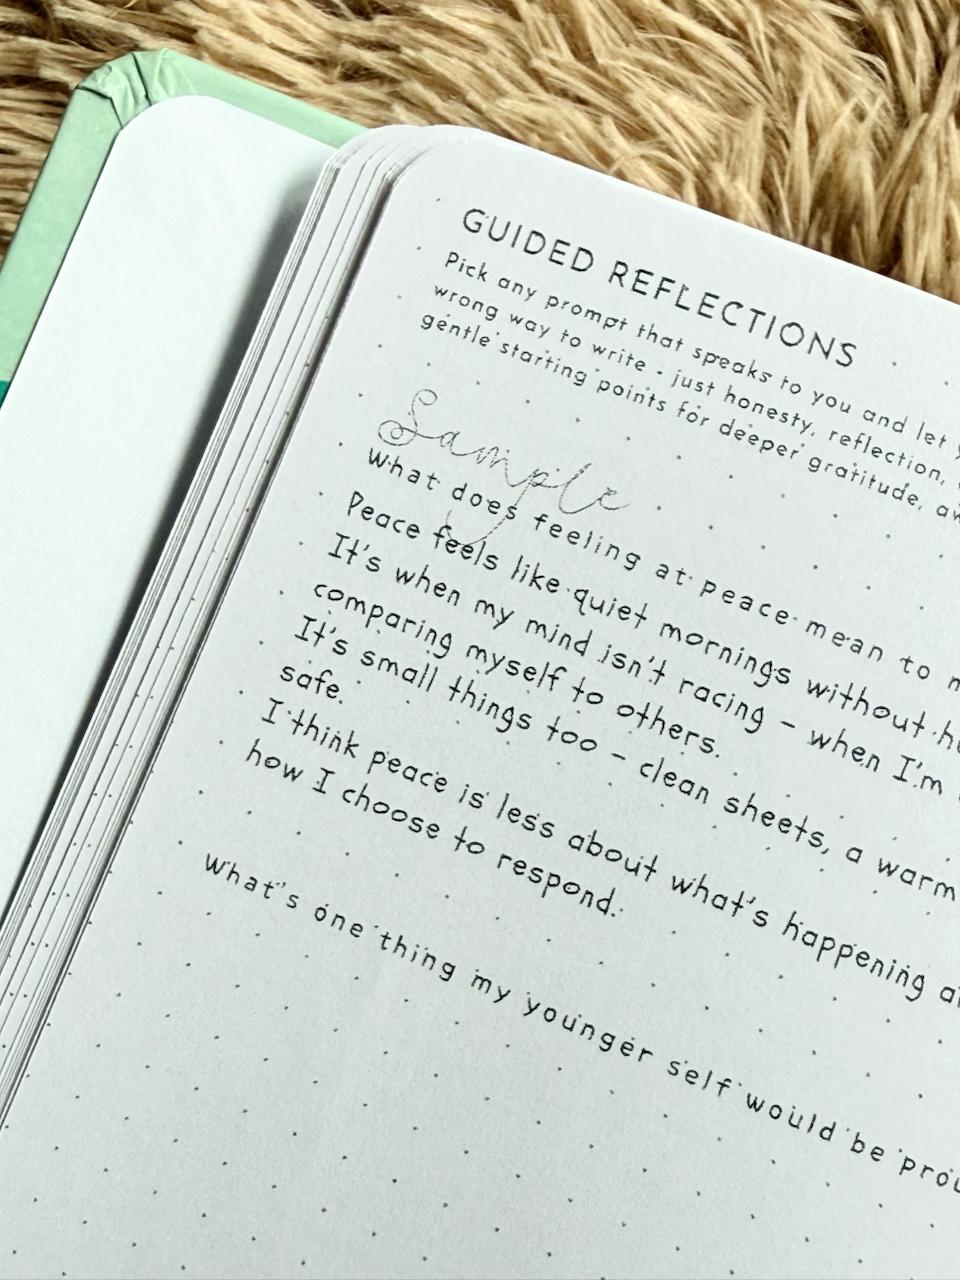 GUIDED REFLECTIONS
Pick any prompt that speaks to you and let
wrong way to write - just honesty, reflection,
gentle starting points for deeper gratitude,
Sample
What does feeling at peace mean to
Peace feels like quiet mornings without
It's when my mind isn't racing – when I'm
comparing myself to others.
It's small things too – clean sheets, a warm
safe.
I think peace is less about what's happening
how I choose to respond.
What's one thing my younger self would be